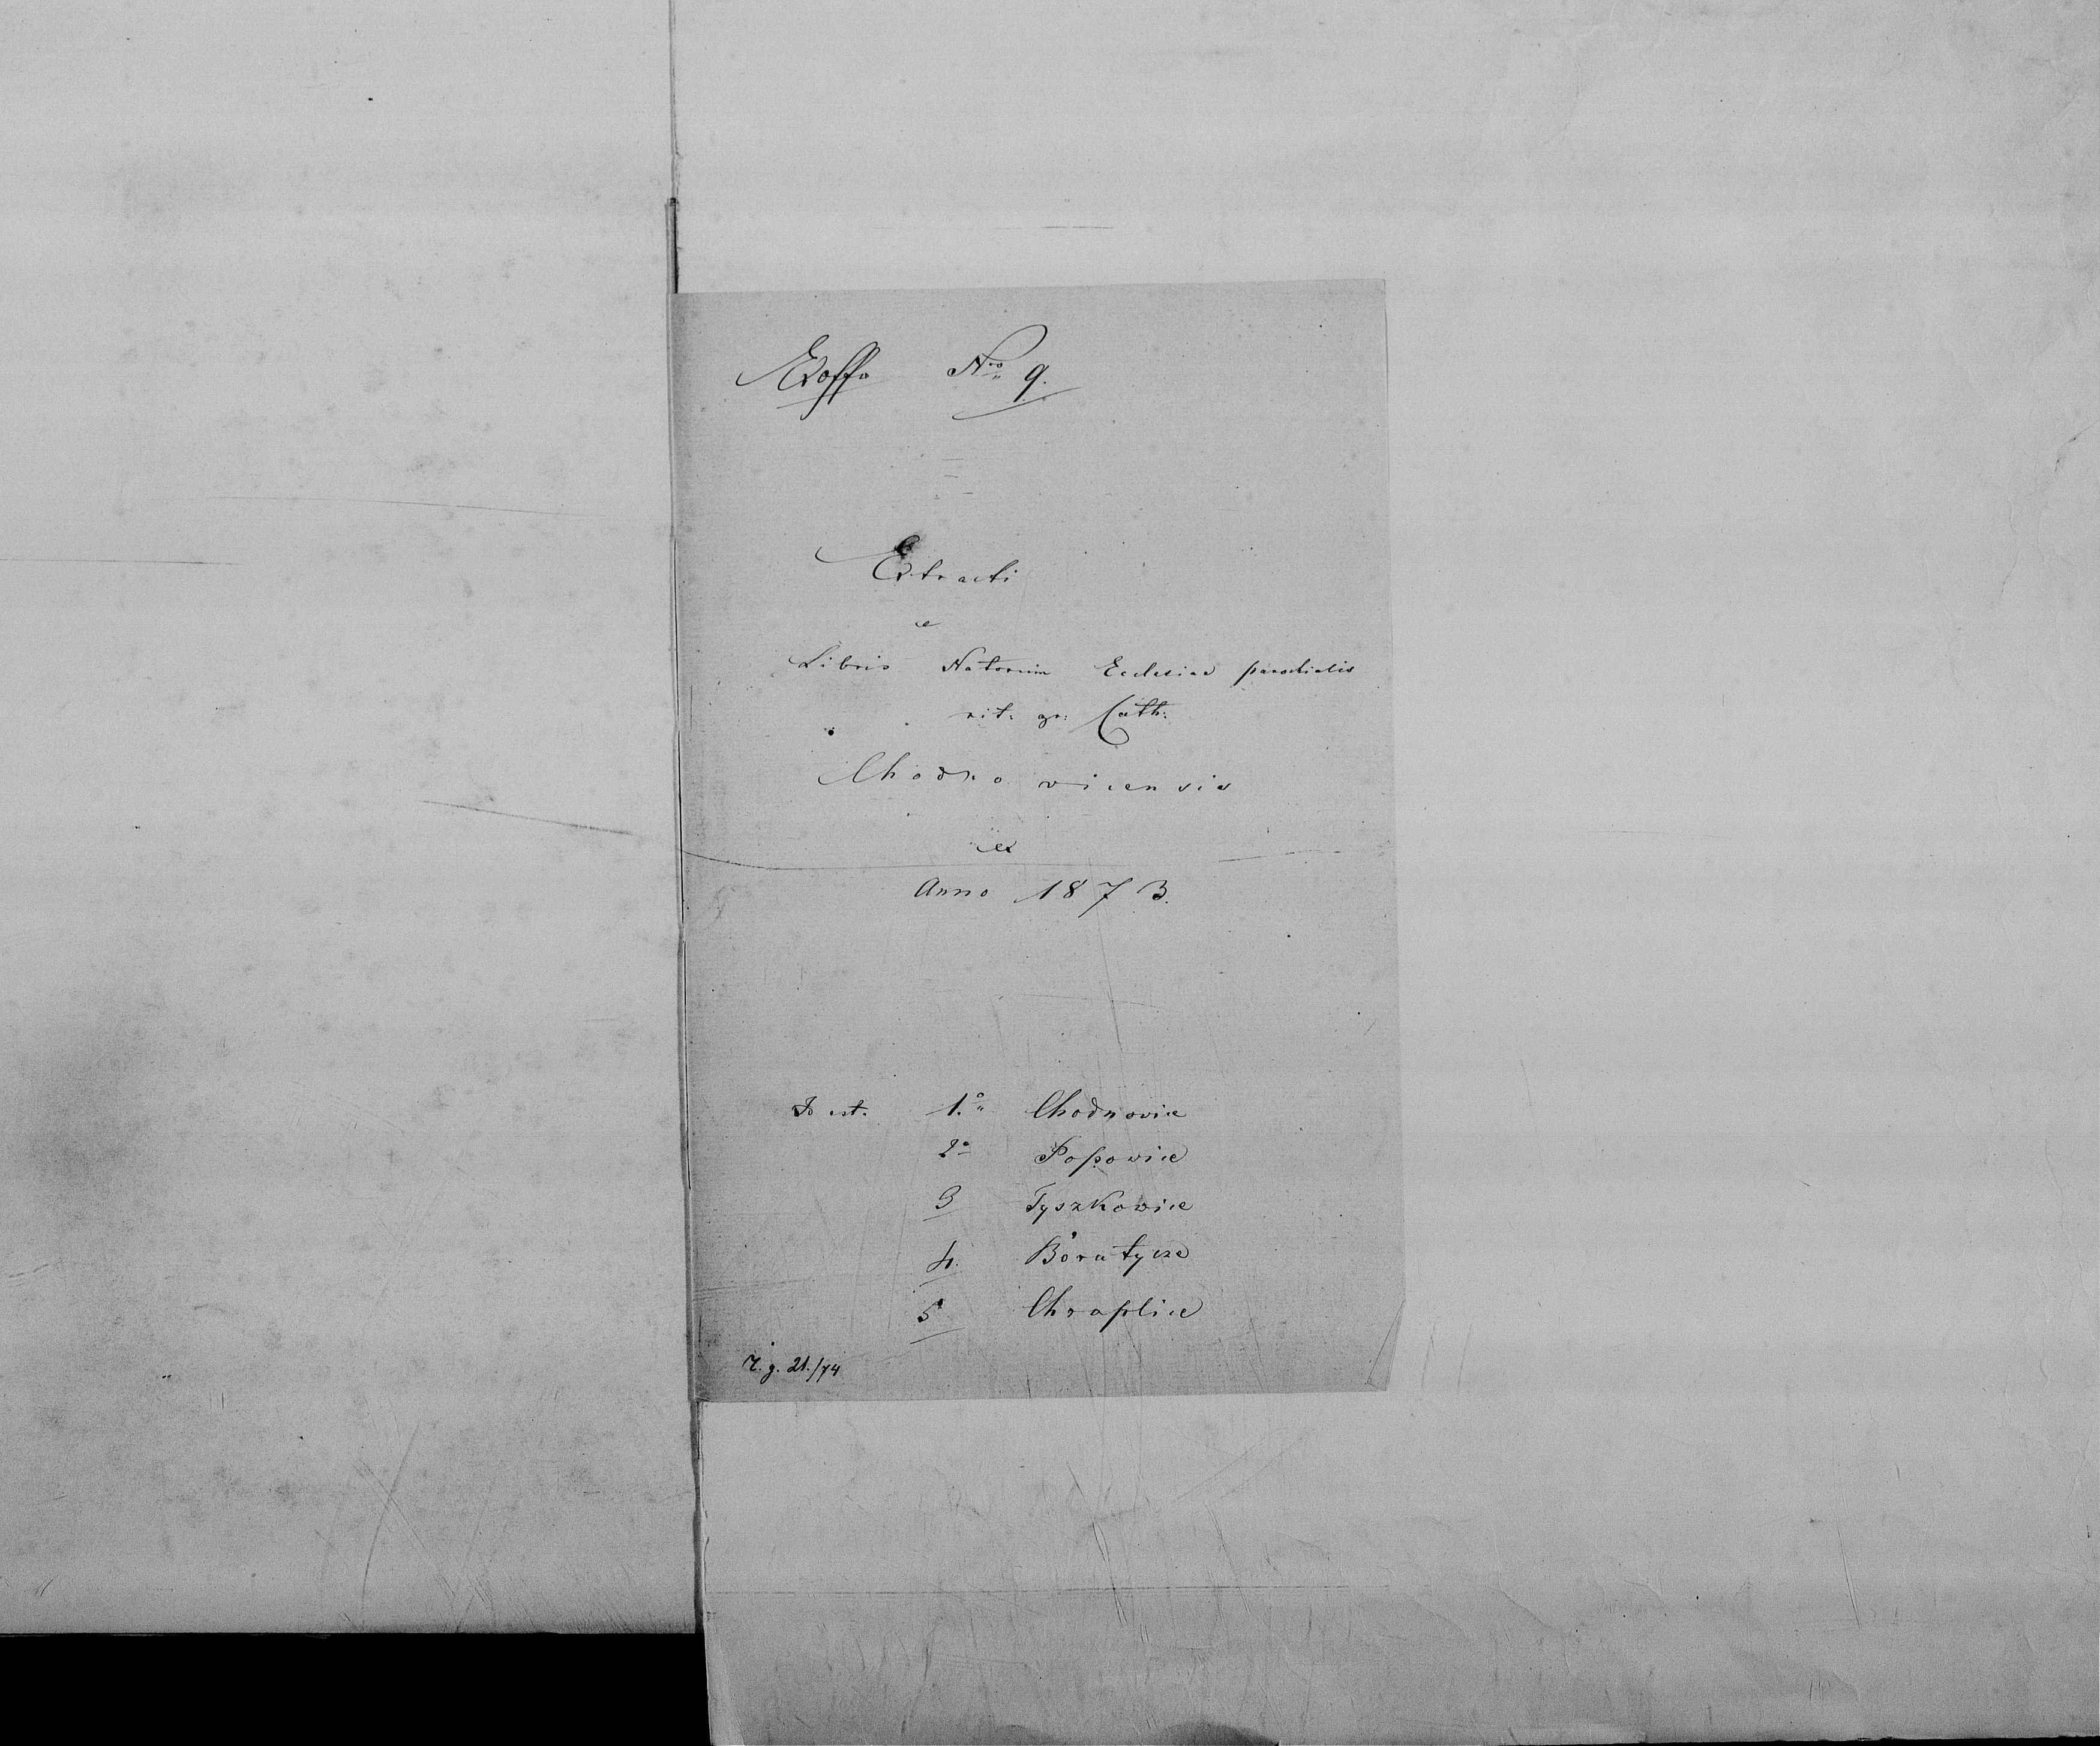 Exoffo Nro 9.
Extracti
e
Libris Natorum Ecclesiae parochialis
rit: gr: Cath:
Chodnovicensis
ex
Anno 1873.
Id est. 1.o Chodnowice
2o Popowice
3 Tyszkowice
4. Boratycze
5 Chraplice
r. g. 21./74